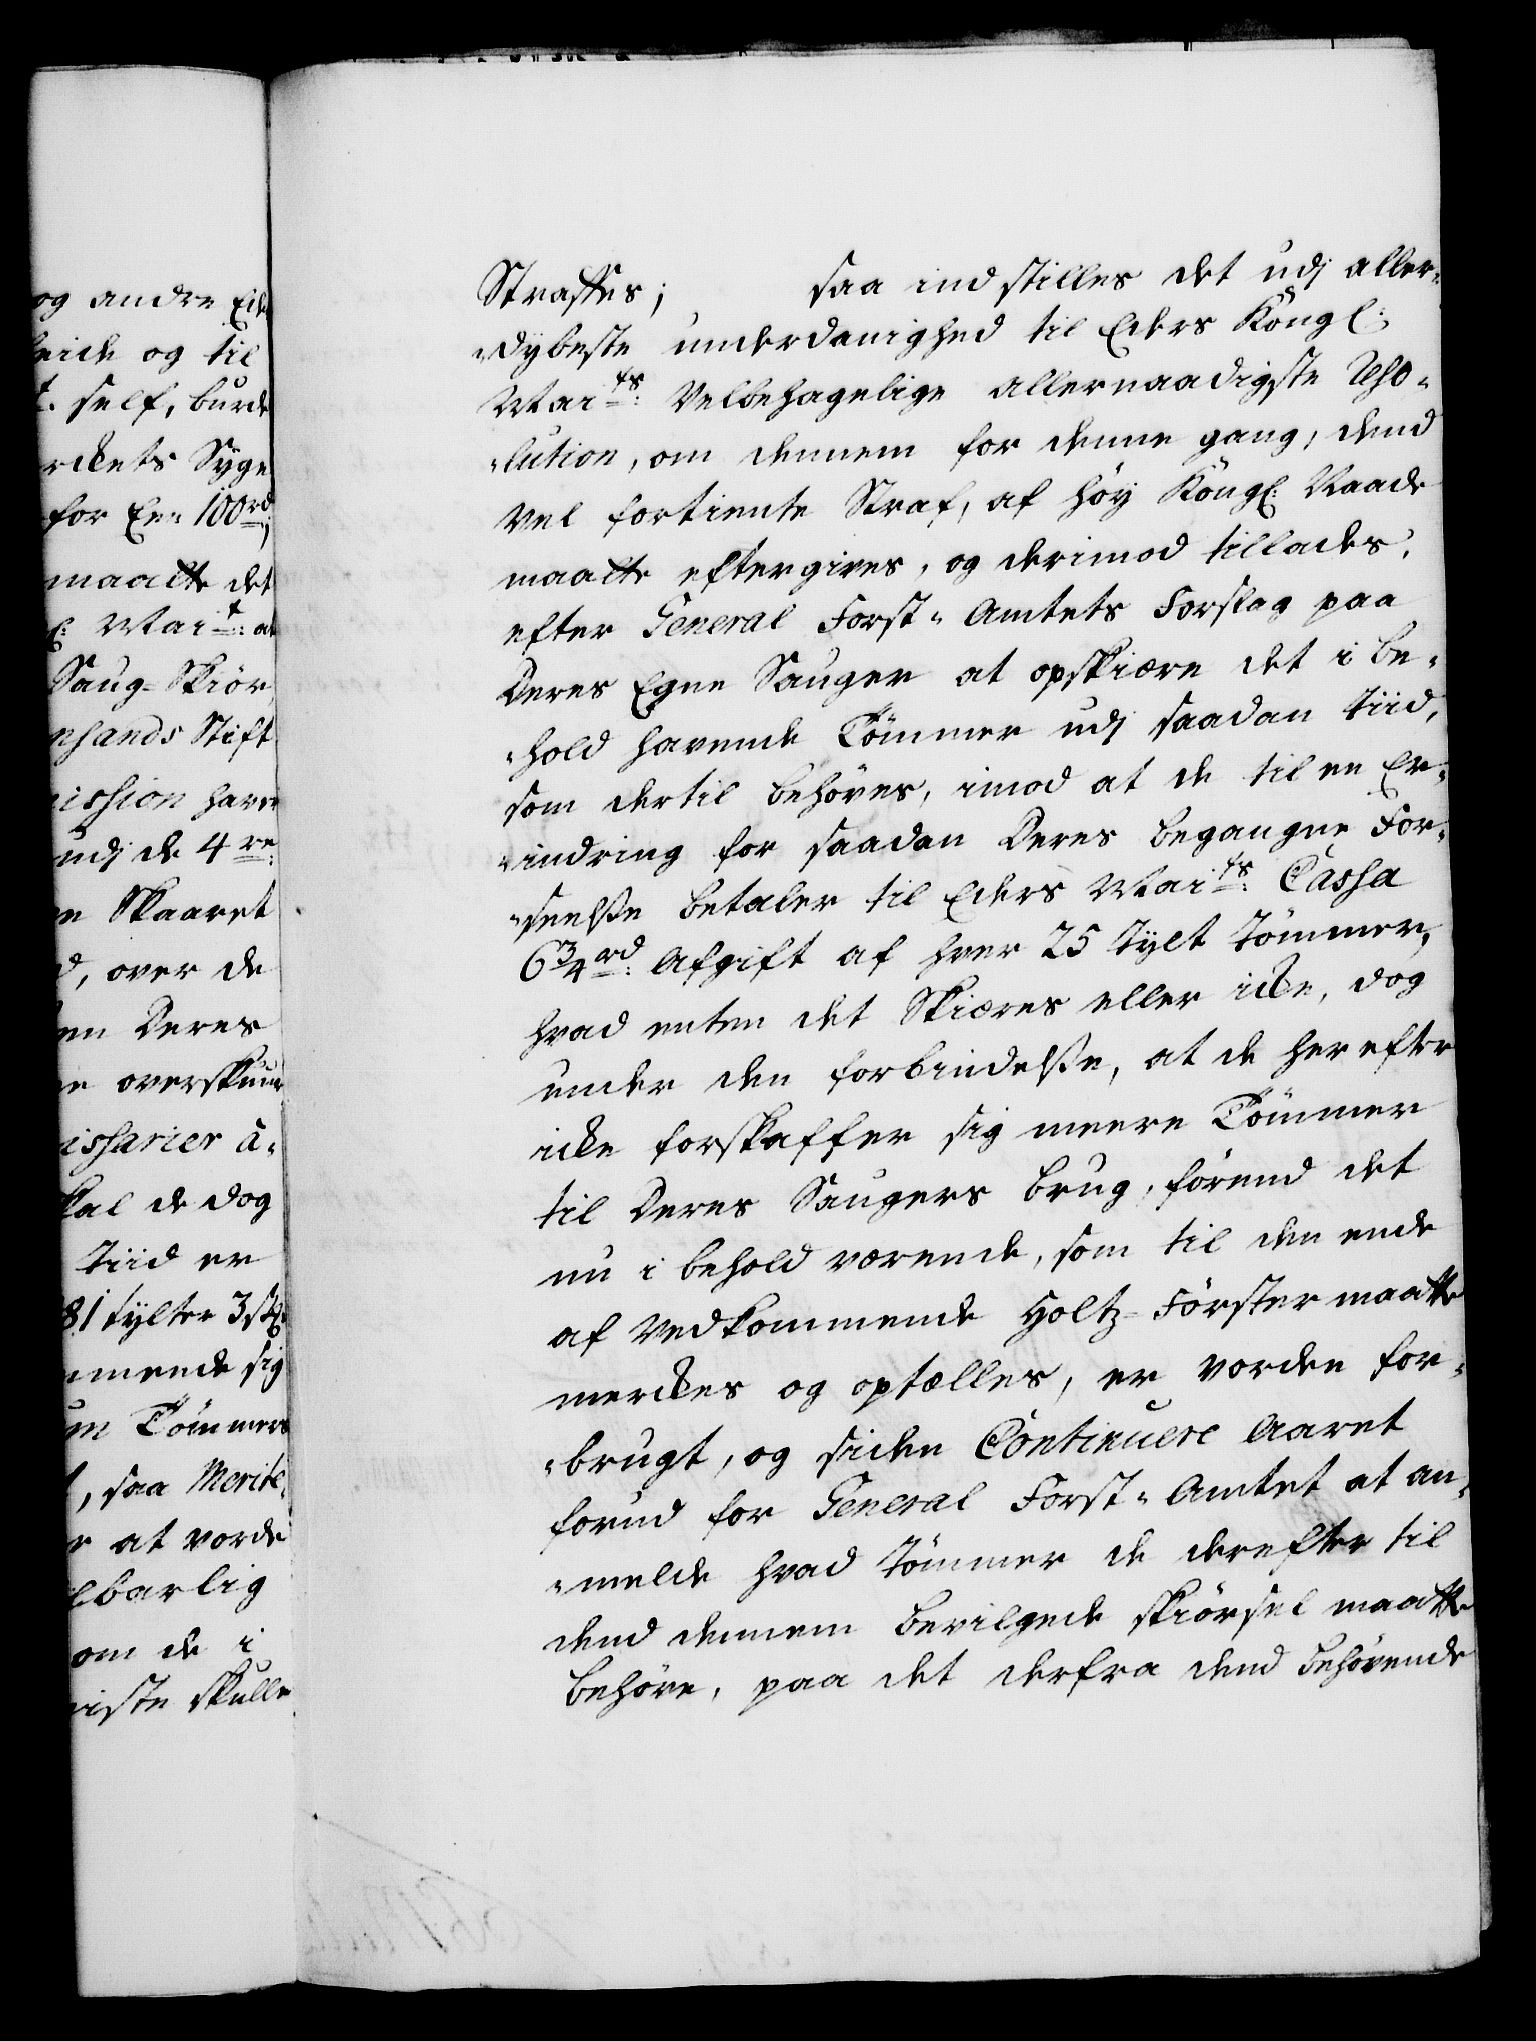 og andre Ede
beide og til
t. self, burde
rckets Syge
for Een 100 rd;
maatte det
E: Mait: at
Saug-Skiør
nsands Stift
ission have
udj de 4re:
Skaaret
d, over de
en Deres
overskuur
issarier á-
kal de dog
Tiid er
81 tylter 3
mmende sig
um Tömmers
, saa Merite-
at vorde
lbarlig
om de i
iste skulle
Straffes; saa indstilles det udj aller-
-dybeste underdanighed til Eders Köngl:
Maits: Velbehagelige allernaadigste Reso-
-lution, om dennem for denne gang, dend
vel fortiente Straf, af höy Köngl: Naade
maatte eftergives, og derimod tillades,
efter General Forst-Amtets Forslag paa
Deres Egne Sauger at opskiære det i be-
-hold havende Tömmer udj saadan tiid,
som dertil behöves, imod at de til en Er-
-indring for saadan Deres begangne For-
-seelsse betaler til Eders Maits: Cassa
6 3/4 rd: Afgift af hver 25 Tylt Tömmer,
hvad enten det Skiæres eller icke, dog
under den forbindelsse, at de herefter
icke forskaffer sig meere Tömmer
til Deres Saugers brug, förend det
nu i behold værende, som til den ende
af vedkommende Holtz-Förster maatte
merckes og optælles, er vorden for-
-brugt, og siden Continuere Aaret
forud for General Forst-Amtet at an-
-melde hvad Tömmer de derefter til
dend dennem bevilgede skiörsel maatte
behöve, paa det derfra dend behövende